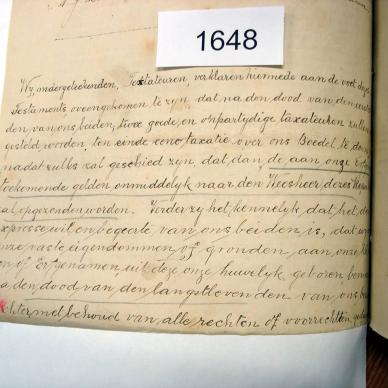 1648
Wy, ondergeteekenden, Testateuren, verklaren hiermede aan de voet dezes
Testaments overeengekomen te zyn, dat, na den dood van den eerste
den, van ons beiden, twee goede, en onpartydige taxateuren zullen
gesteld, worden, ten einde eene taxatie over ons Boedel te, doen
nadat zulks zal geschied zyn, dat, dan, de aan, onze
toekomende gelden onmiddelyk naar, den Weesheer, dezes
zal opgezonden worden. Verder zy het, kennelyk, dat, het, de
expresse wil en begeerte van, ons beiden, is, dat
vaste, eigendommen, of gronden, aan, onze
of Erfgenamen, uit deze onze huwelyk, geboren,
den, dood van, den langstlevenden van, ons
met behoud van, alle, rechten of voorrechten,